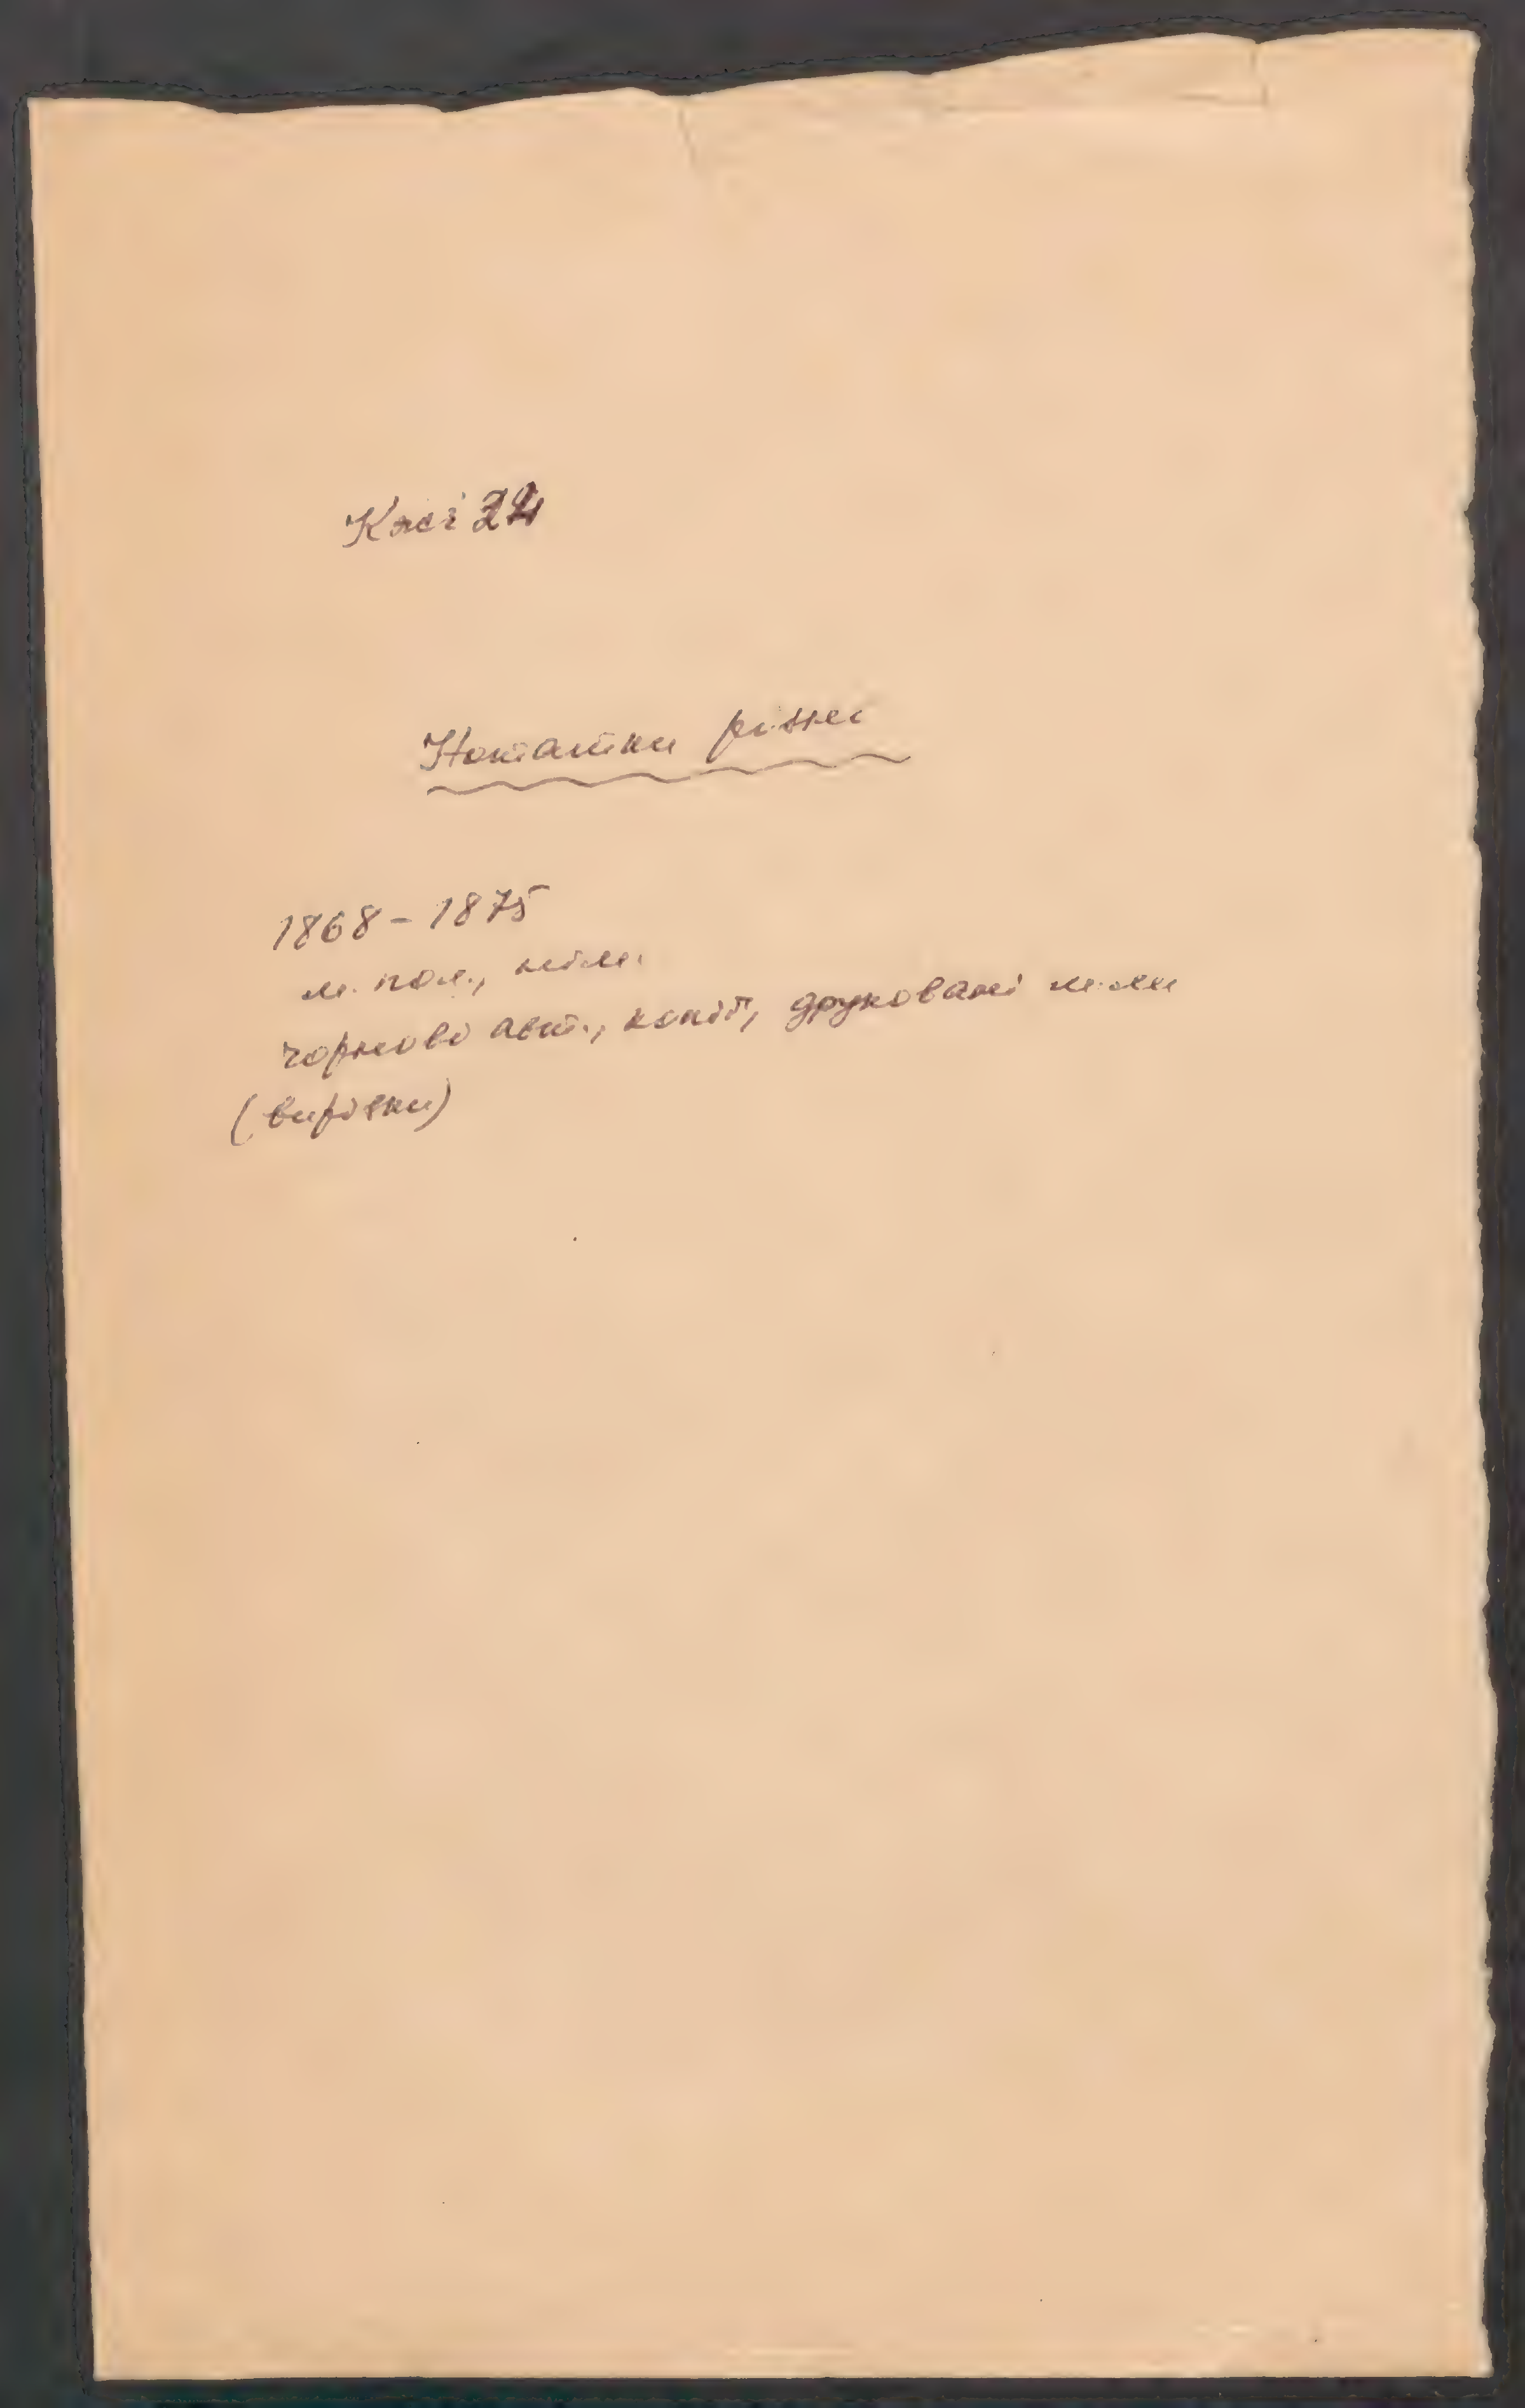 24
Нотатки різні
1868 - 1875
м. пол., нім.
чорнові авт., копії, друковані м-ли
(вирізки)